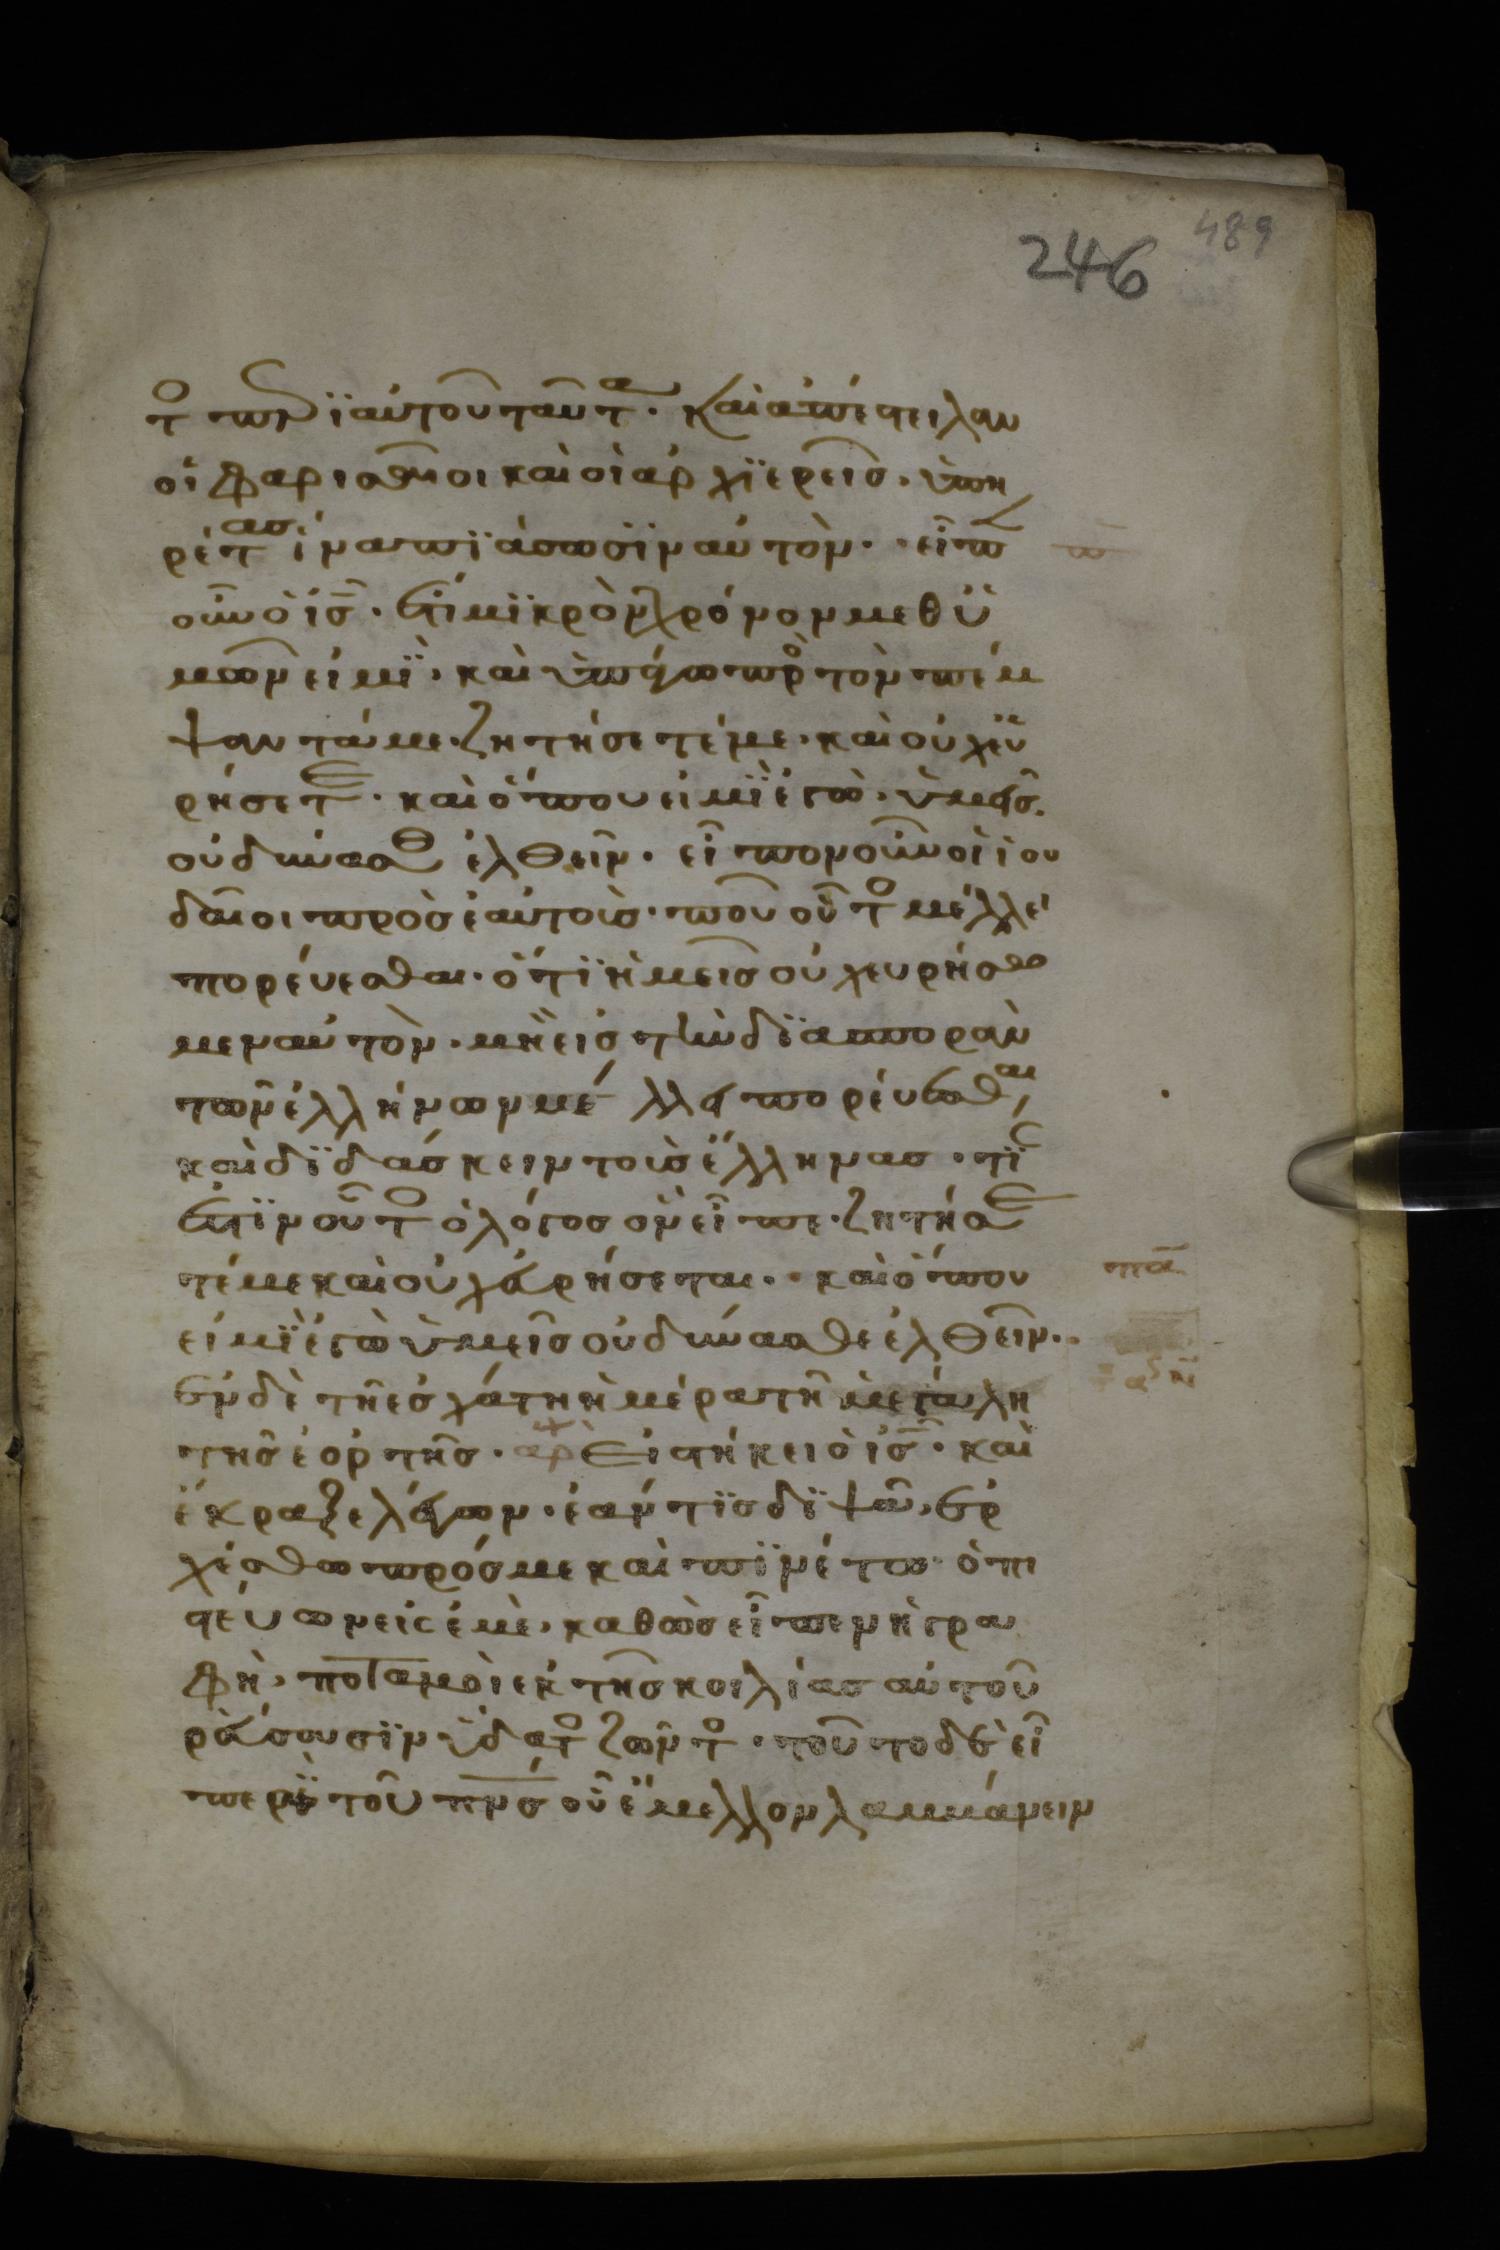 489
246
το περι αυτου ταυτα. και απέστειλαν
οἱ φαρισαῖοι καὶ οἱ ἀρχϊερεῖς. ὑπη
ρέτασ ἵνα πϊάσωσϊν αυτὸν. εἶπ
οῦν ὁ ἰς̅. ἔτι μϊκρὸν χρόνον μεθ ὑ
μῶν εἰμὶ. καὶ ὑπάγω πρὸ τὸν πέμ
ψαντά με. ζητήσετέ με. καὶ οὐχ εὑ
ρήσετε. καὶ ὅπου εἰμῒ ἐγὼ. ὑμεῖς
οὐ δύνασθε ἐλθεῖν. εἶπον οὖν οἱ ἰου
δαῖοι πρὸσ ἑαυτοὺσ. ποῦ οὗτο μέλλει
πορεύεσθαι. ὅτϊ ἡμεῖσ οὐχ ευρήσο
μεν αὐτὸν. μὴ εἰσ τὴν δϊασποραν
τῶν ἑλλήνων μέλλει πορεύεσθαι
καὶ δϊδάσκειν τοὺσ ἕλληνασ. τίσ
ἐστϊν οὗτο ὁ λόγοσ ὃν εἶπε. ζητήσε
τέ με καὶ οὐχ εὑρήσεται. καὶ ὅπου
πα
εἰμῒ ἐγὼ ὑμεῖσ οὐ δύνασθε ἐλθεῖν.
ἐν δὲ τῆ ἐσχάτη ἡμέρα τῆ μεγάλη
τῆσ ἑορτῆσ. αρ εἱστήκει ὁ ἰς̅. καὶ
ἔκραξε λέγων. ἐάν τϊσ δϊψᾶ, ἐρ
χέσθω πρόσ με καὶ πϊνέτω. ὁ πι
στεύων εἰς ἐμὲ, καθὼσ εἶπεν ἡ γρα
φὴ, ποταμοὶ ἐκ τῆσ κοιλίασ αὐτοῦ
ρεύσουσϊν ὕδατο ζῶντο. τοῦτο δὲ εἶ
πε περῒ τοῦ πνς̅ οὗ ἔμελλον λαμμάνειν